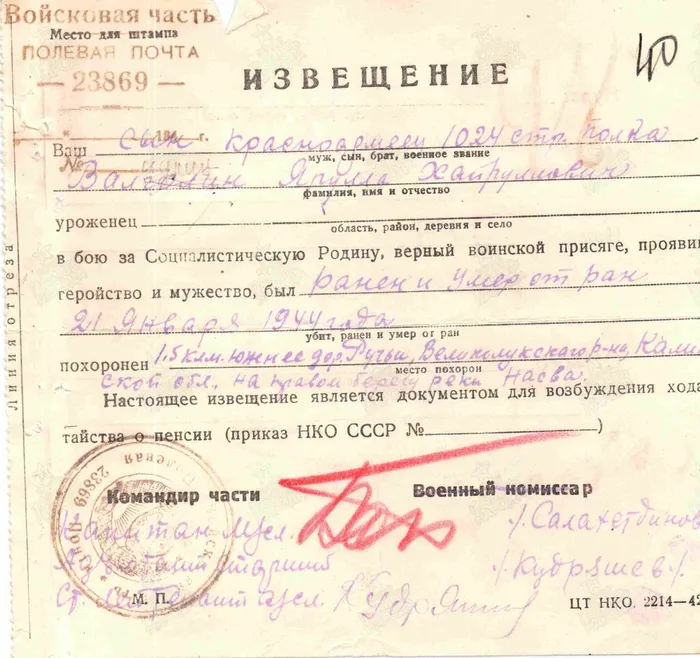 Войсковая часть
Место для штампа
ПОЛЕВАЯ ПОЧТА
— 23869 —
40
ИЗВЕЩЕНИЕ
194 г.
№
Ваш сын красноармеец 1024 стр. полка
муж, сын, брат, военное звание
Ярулла Хайруллович
фамилия, имя и отчество
уроженец
область, район, деревня и село
в бою за Социалистическую Родину, верный воинской присяге, прояви
геройство и мужество, был ранен и умер от ран
21 января 1944 года
убит, ранен и умер от ран
похоронен 1.5 клм. южнее дер. Ручьи, Великолукского р-на, Кали
место похорон
ской обл. на правом берегу реки Насва.
Настоящее извещение является документом для возбуждения хода
тайства о пенсии (приказ НКО СССР № )
Командир части
Военный комиссар
Капитан
/. Салахетдинов
старший
/. Кудряшев /.
Ст. лейтенант
М. П.
ЦТ НКО. 2214—42
Линия отреза
23869